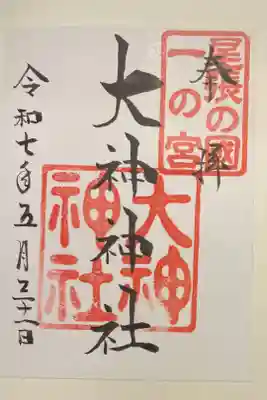 奉拝
尾張の國
一の宮
大神神社
大神
神社
令和七年五月三十一日